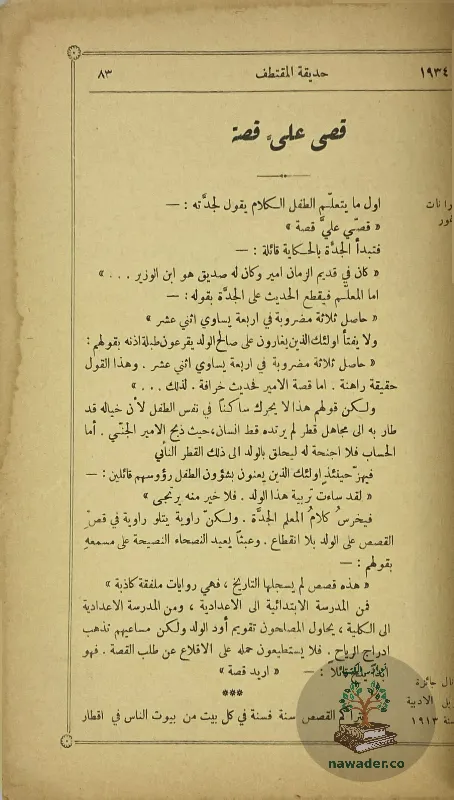 ١٩٣٤ حديقة المقتطف ٨٣
قصى علىَّ قصة
اول ما يتعلّم الطفل الكلام يقول لجدَّته : —
« قصّي عليَّ قصة »
فتبدأ الجدَّة بالحكاية قائلة : —
« كان في قديم الزمان امير وكان له صديق هو ابن الوزير . . . »
اما المعلّم فيقطع الحديث على الجدَّة بقوله : —
« حاصل ثلاثة مضروبة في اربعة يساوي اثني عشر »
ولا يفتأ اولئك الذين يغارون على صالح الولد يقرعون طبلة اذنه بقولهم :
« حاصل ثلاثة مضروبة في اربعة يساوي اثني عشر . وهذا القول
حقيقة راهنة . اما قصة الامير فحديث خرافة . لذلك . . . »
ولكن قولهم هذا لا يحرك ساكناً في نفس الطفل لأن خياله قد
طار به الى مجاهل قطر لم يرتده قط انسان، حيث ذبح الامير الجنّي . أما
الحساب فلا اجنحة له ليحلق بالولد الى ذلك القطر النائي
فيهزّ حينئذٍ اولئك الذين يعنون بشؤون الطفل رؤوسهم قائلين : —
« لقد ساءت تربية هذا الولد . فلا خير منه يرتجى »
فيخرسُ كلامُ المعلم الجدَّة . ولكنّ راوية يتلو راوية في قصّ
القصص على الولد بلا انقطاع . وعبثاً يعيد النصحاء النصيحة على مسمعهِ
بقولهم : —
« هذه قصص لم يسجلها التاريخ ، فهي روايات ملفقة كاذبة »
فمن المدرسة الابتدائية الى الاعدادية ، ومن المدرسة الاعدادية
الى الكلية ، يحاول المصلحون تقويم أود الولد ولكن مساعيهم تذهب
ادراج الرياح . فلا يستطيعون حمله على الاقلاع عن طلب القصة . فهو
: — « اريد قصة »
***
القصص سنة فسنة في كل بيت من بيوت الناس في اقطار
جائزة
الادبية
سنة ١٩١٣
nawader.co